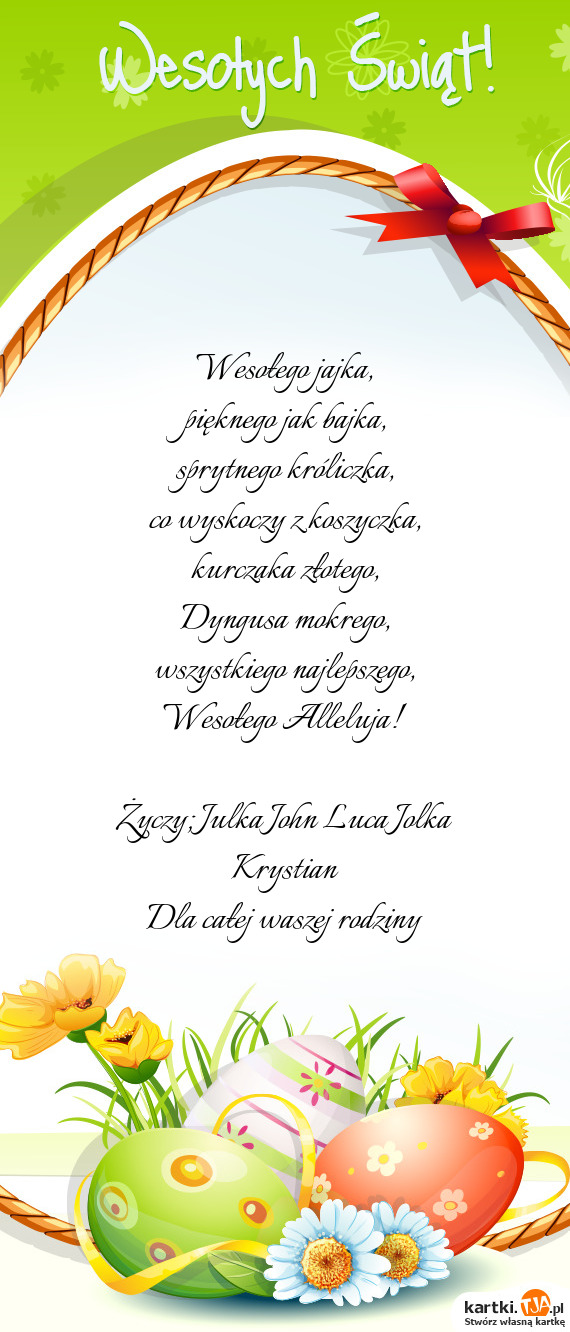 Wesołych Świąt!
Wesołego jajka,
pięknego jak bajka,
sprytnego króliczka,
co wyskoczy z koszyczka,
kurczaka złotego,
Dyngusa mokrego,
wszystkiego najlepszego,
Wesołego Alleluja!
Życzy;Julka John Luca Jolka
Krystian
Dla całej waszej rodziny
kartki.TJA.pl
Stwórz własną kartkę